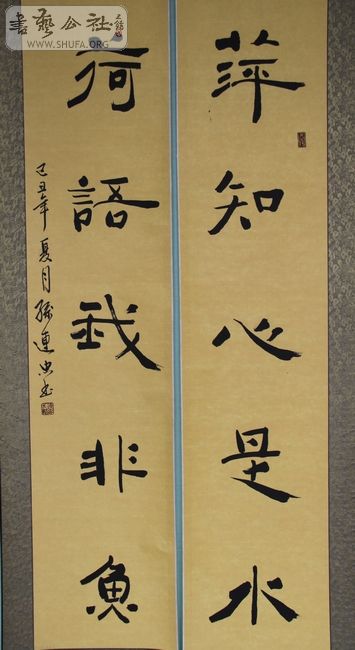 萍知心是水
荷語我非魚
己丑年夏月孫連忠書
書藝公社
WWW.SHUFA.ORG